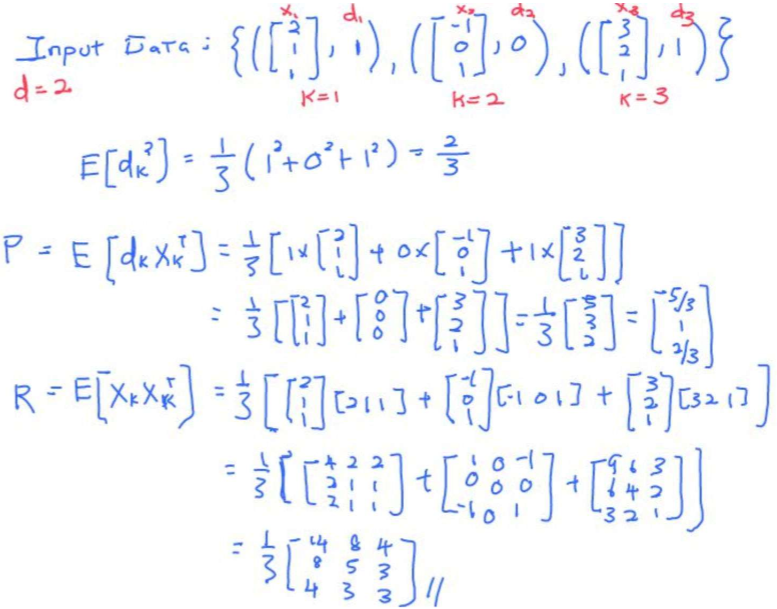 x₁ d₁ x₂ d₂ x₃ d₃
Input Data: {([2 1 1], 1), ([-1 0 1], 0), ([3 2 1], 1)}
d=2 K=1 K=2 K=3
E[d_K²] = 1/3 (1²+0²+1²) = 2/3
P = E[d_K X_K^T] = 1/3 [1x[2 1 1] + 0x[-1 0 1] + 1x[3 2 1]]
= 1/3 [[2 1 1] + [0 0 0] + [3 2 1]] = 1/3 [5 3 2] = [5/3 1 2/3]
R = E[X_K X_K^T] = 1/3 [[2 1 1][2 1 1] + [-1 0 1][-1 0 1] + [3 2 1][3 2 1]]
= 1/3 [[4 2 2; 2 1 1; 2 1 1] + [1 0 -1; 0 0 0; -1 0 1] + [9 6 3; 6 4 2; 3 2 1]]
= 1/3 [14 8 4; 8 5 3; 4 3 3] //